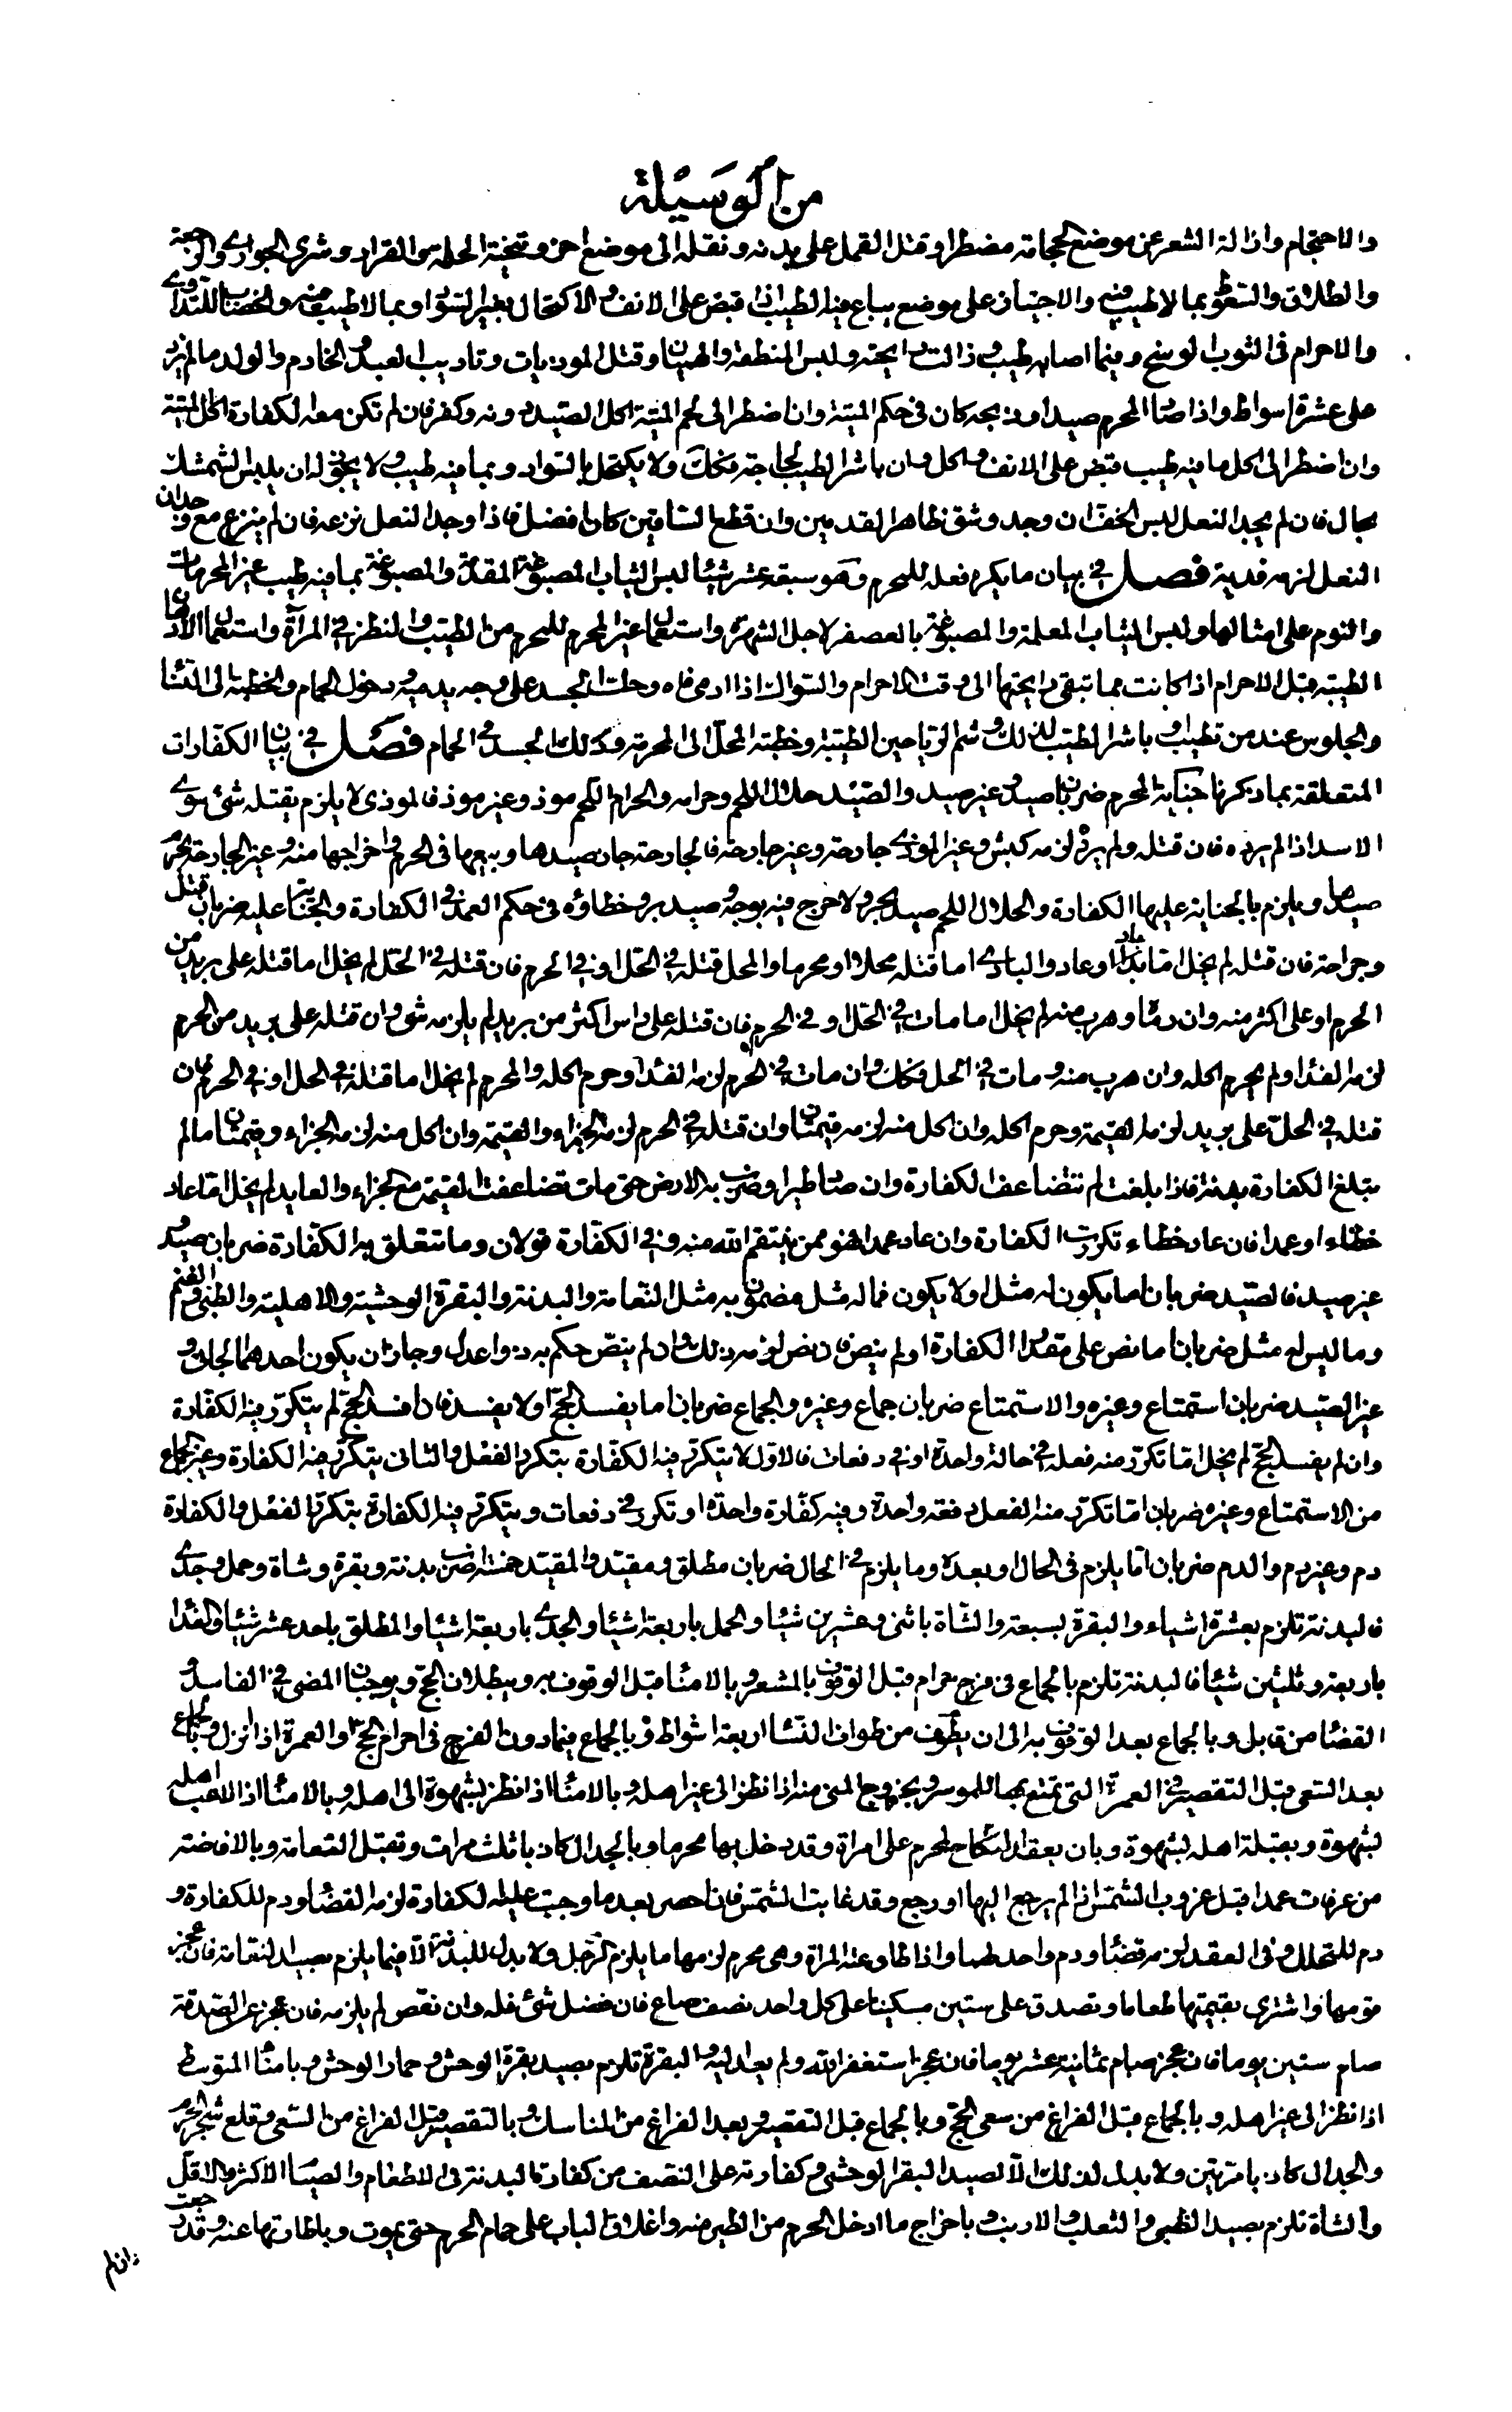 من الوسيلة
والاحتجام وازالة الشعر عن موضع الحجامة مضطرا وقتل القمل على بدنه ونقله الى موضع اخر وتنحية الحلم من القراد وشرى الجوارى والرجعة
والطلاق والتسعط بما لا طيب فيه والاجتياز على موضع يباع فيه الطيب اذا قبض على الانف والاكتحال بغير السواد وبما لا طيب فيه والخضاب للتداوى
والاحرام فى الثوب الوسخ وفيما اصابه طيب وزالت رايحته ولبس المنطقة والهميان وقتل الموذيات وتاديب العبد والخادم والولد ما لم يزد
على عشرة اسواط واذا صاد المحرم صيدا او ذبحه كان فى حكم الميتة وان اضطر الى لحم الميتة اكل الصيد دونه وكفر فان لم تكن معه الكفارة اكل الميتة
وان اضطر الى اكل ما فيه طيب قبض على الانف واكل وان باشر الطيب لحاجته فكذلك ولا يكتحل بالسواد وبما فيه طيب ولا يجوز له ان يلبس الشمشك
بحال فان لم يجد النعل لبس الخف ان وجد وشق ظاهر القدمين وان قطع الساقين كان افضل فاذا وجد النعل نزعه فان لم ينزع مع وجدان
النعل لزمه فدية فصل في بيان ما يكره فعله للمحرم وهو سبعة عشر شيئا لبس الثياب المصبوغة المقدمة والمصبوغة بما فيه طيب غير المحرمات
والنوم على امثالها ولبس الثياب المعلمة والمصبوغة بالعصفر لاجل الشهرة واستعمال غير المحرم للمحرم من الطيب والنظر في المرآة واستعمال الادهان
الطيبة قبل الاحرام اذا كانت مما تبقى رايحتها الى وقت الاحرام والسواك اذا ادمى فاه وحك الجسد على وجه يدميه ودخول الحمام والخطبة الى النساء
والجلوس عند من تطيب او باشر الطيب لذلك وشم الرياحين الطيبة وخطبة المحل الى المحرمة ودلك الجسد فى الحمام فصل في بيان الكفارات
المتعلقة بما ذكرنا جناية المحرم ضربان صيد وغير صيد والصيد حلال اللحم وحرامه والحرام اللحم موذ وغير موذ فالموذى لا يلزم بقتله شئ سوى
الاسد اذا لم يرده فان قتله ولم يرده لزمه كبش وغير الموذى جارحة وغير جارحة فالجارحة جاز صيدها وبيعها فى الحرم واخراجها منه وغير الجارحة يحرم
صيدها ويلزم بالجناية عليها الكفارة والحلال اللحم صيد بحر ولا حرج فيه بوجه وصيد بر وخطاؤه فى حكم العمد فى الكفارة والجناية عليه ضربان قتل
وجراحة فان قتله لم يخل اما بدا او عاد والبادى اما قتله محلا او محرما والمحل قتله في الحل او في الحرم فان قتله في الحل لم يخل اما قتله على بريد من
الحرم او على اكثر منه وان رماه وهرب منه لم يخل اما مات في الحل او في الحرم فان قتله على راس اكثر من بريد لم يلزمه شئ وان قتله على بريد من الحرم
لزمه الفداء ولم يحرم اكله وان هرب منه ومات في الحل فكذلك وان مات في الحرم لزمه الفداء وحرم اكله والمحرم لم يخل اما قتله في الحل او في الحرم فان
قتله في الحل على بريد لزمه القيمة وحرم اكله وان اكل منه لزمه قيمتان وان قتله في الحرم لزمه الجزاء والقيمة وان اكل منه لزمه الجزاء وقيمتان ما لم
تبلغ الكفارة بدنة فاذا بلغت لم تتضاعف الكفارة وان صاد طيرا وضرب به الارض حتى مات تضاعفت القيمة مع الجزاء والعايد لم يخل اما عاد
خطاء او عمدا فان عاد خطاء تكررت الكفارة وان عاد عمدا فهو ممن ينتقم الله منه وفي الكفارة قولان وما تتعلق به الكفارة ضربان صيد و
غير صيد فالصيد ضربان اما يكون له مثل او لا يكون فما له مثل مضمون به مثل النعامة والبدنة والبقرة الوحشية والاهلية والظبى والغنم
وما ليس له مثل ضربان اما نص على مقدار الكفارة او لم ينص فان نص لزمه ذلك وان لم ينص حكم به ذوا عدل وجاز ان يكون احدهما الجانى و
غير الصيد ضربان استمتاع وغيره والاستمتاع ضربان جماع وغيره والجماع ضربان اما يفسد الحج او لا يفسد فان افسد الحج لم يتكرر فيه الكفارة
وان لم يفسد الحج لم يخل اما تكرر منه فعله في حالة واحدة او في دفعات فالاول لا يتكرر فيه الكفارة بتكرر الفعل والثانى يتكرر فيه الكفارة وغير الجماع
من الاستمتاع وغيره ضربان اما تكرر منه الفعل دفعة واحدة وفيه كفارة واحدة او تكرر في دفعات ويتكرر فيه الكفارة بتكرر الفعل والكفارة
دم وغير دم والدم ضربان اما يلزم فى الحال او بعده وما يلزم في الحال ضربان مطلق ومقيد والمقيد خمسة اضرب بدنة وبقرة وشاة وحمل وجدى
فالبدنة تلزم بعشرة اشياء والبقرة بسبعة والشاة باثنى وعشرين شيئا والحمل باربعة اشياء والجدى باربعة اشياء والمطلق باحد عشر شيئا والفداء
باربعة وثلثين شيئا فالبدنة تلزم بالجماع فى فرج حرام قبل الوقوف بالمشعر وبالامناء قبل الوقوف به ويبطلان الحج ويوجبان المضى في الفاسد و
القضاء من قابل وبالجماع بعد الوقوف به الى ان يطوف من طواف النساء اربعة اشواط وبالجماع فيما دون الفرج فى احرام الحج والعمرة اذا انزل وبالجماع
بعد السعى قبل التقصير في العمرة التى تمتع بها للموسر وبخروج المنى منه اذا نظر الى غير اهله وبالامناء اذا نظر بشهوة الى اهله وبالامناء اذا لاعب اهله
بشهوة وبقبلة اهله بشهوة وبان يعقد النكاح لمحرم على امراة وقد دخل بها محرما وبالجدال كاذبا ثلث مرات وبقتل النعامة وبالافاضة
من عرفات عمدا قبل غروب الشمس اذا لم يرجع اليها او رجع وقد غابت الشمس فان احصر بعد ما وجبت عليه الكفارة لزمه القضاء ودم للكفارة و
دم للتحلل وفى العقد لزمه قضاء ودم واحد لهما واذا طاوعته المراة وهى محرم لزمها ما يلزم الرجل ولا بدل للبدنة الا فيما يلزم بصيد النعامة فان عجز
قومها واشترى بقيمتها طعاما وتصدق على ستين مسكينا على كل واحد نصف صاع فان فضل شئ فله وان نقص لم يلزمه فان عجز عن الصدقة
صام ستين يوما فان عجز صام ثمانية عشر يوما فان عجز استغفر الله ولم يعد اليه والبقرة تلزم بصيد بقرة الوحش وحمار الوحش وبامناء المتوسط
اذا نظر الى غير اهله وبالجماع قبل الفراغ من سعى الحج وبالجماع قبل التقصير وبعد الفراغ من المناسك وبالتقصير قبل الفراغ من السعى وقلع شجر الحرم
والجدال كاذبا مرتين ولا بدل لذلك الا لصيد البقر الوحشى وكفارته على النصف من كفارة البدنة فى الاطعام والصيام الاكثر والاقل
والشاة تلزم بصيد الظبى والثعلب والارنب وباخراج ما ادخل الحرم من الطير منه واغلاق الباب على حمام الحرم حتى يموت وباطارتها عنه وقد رجعت
فان لم